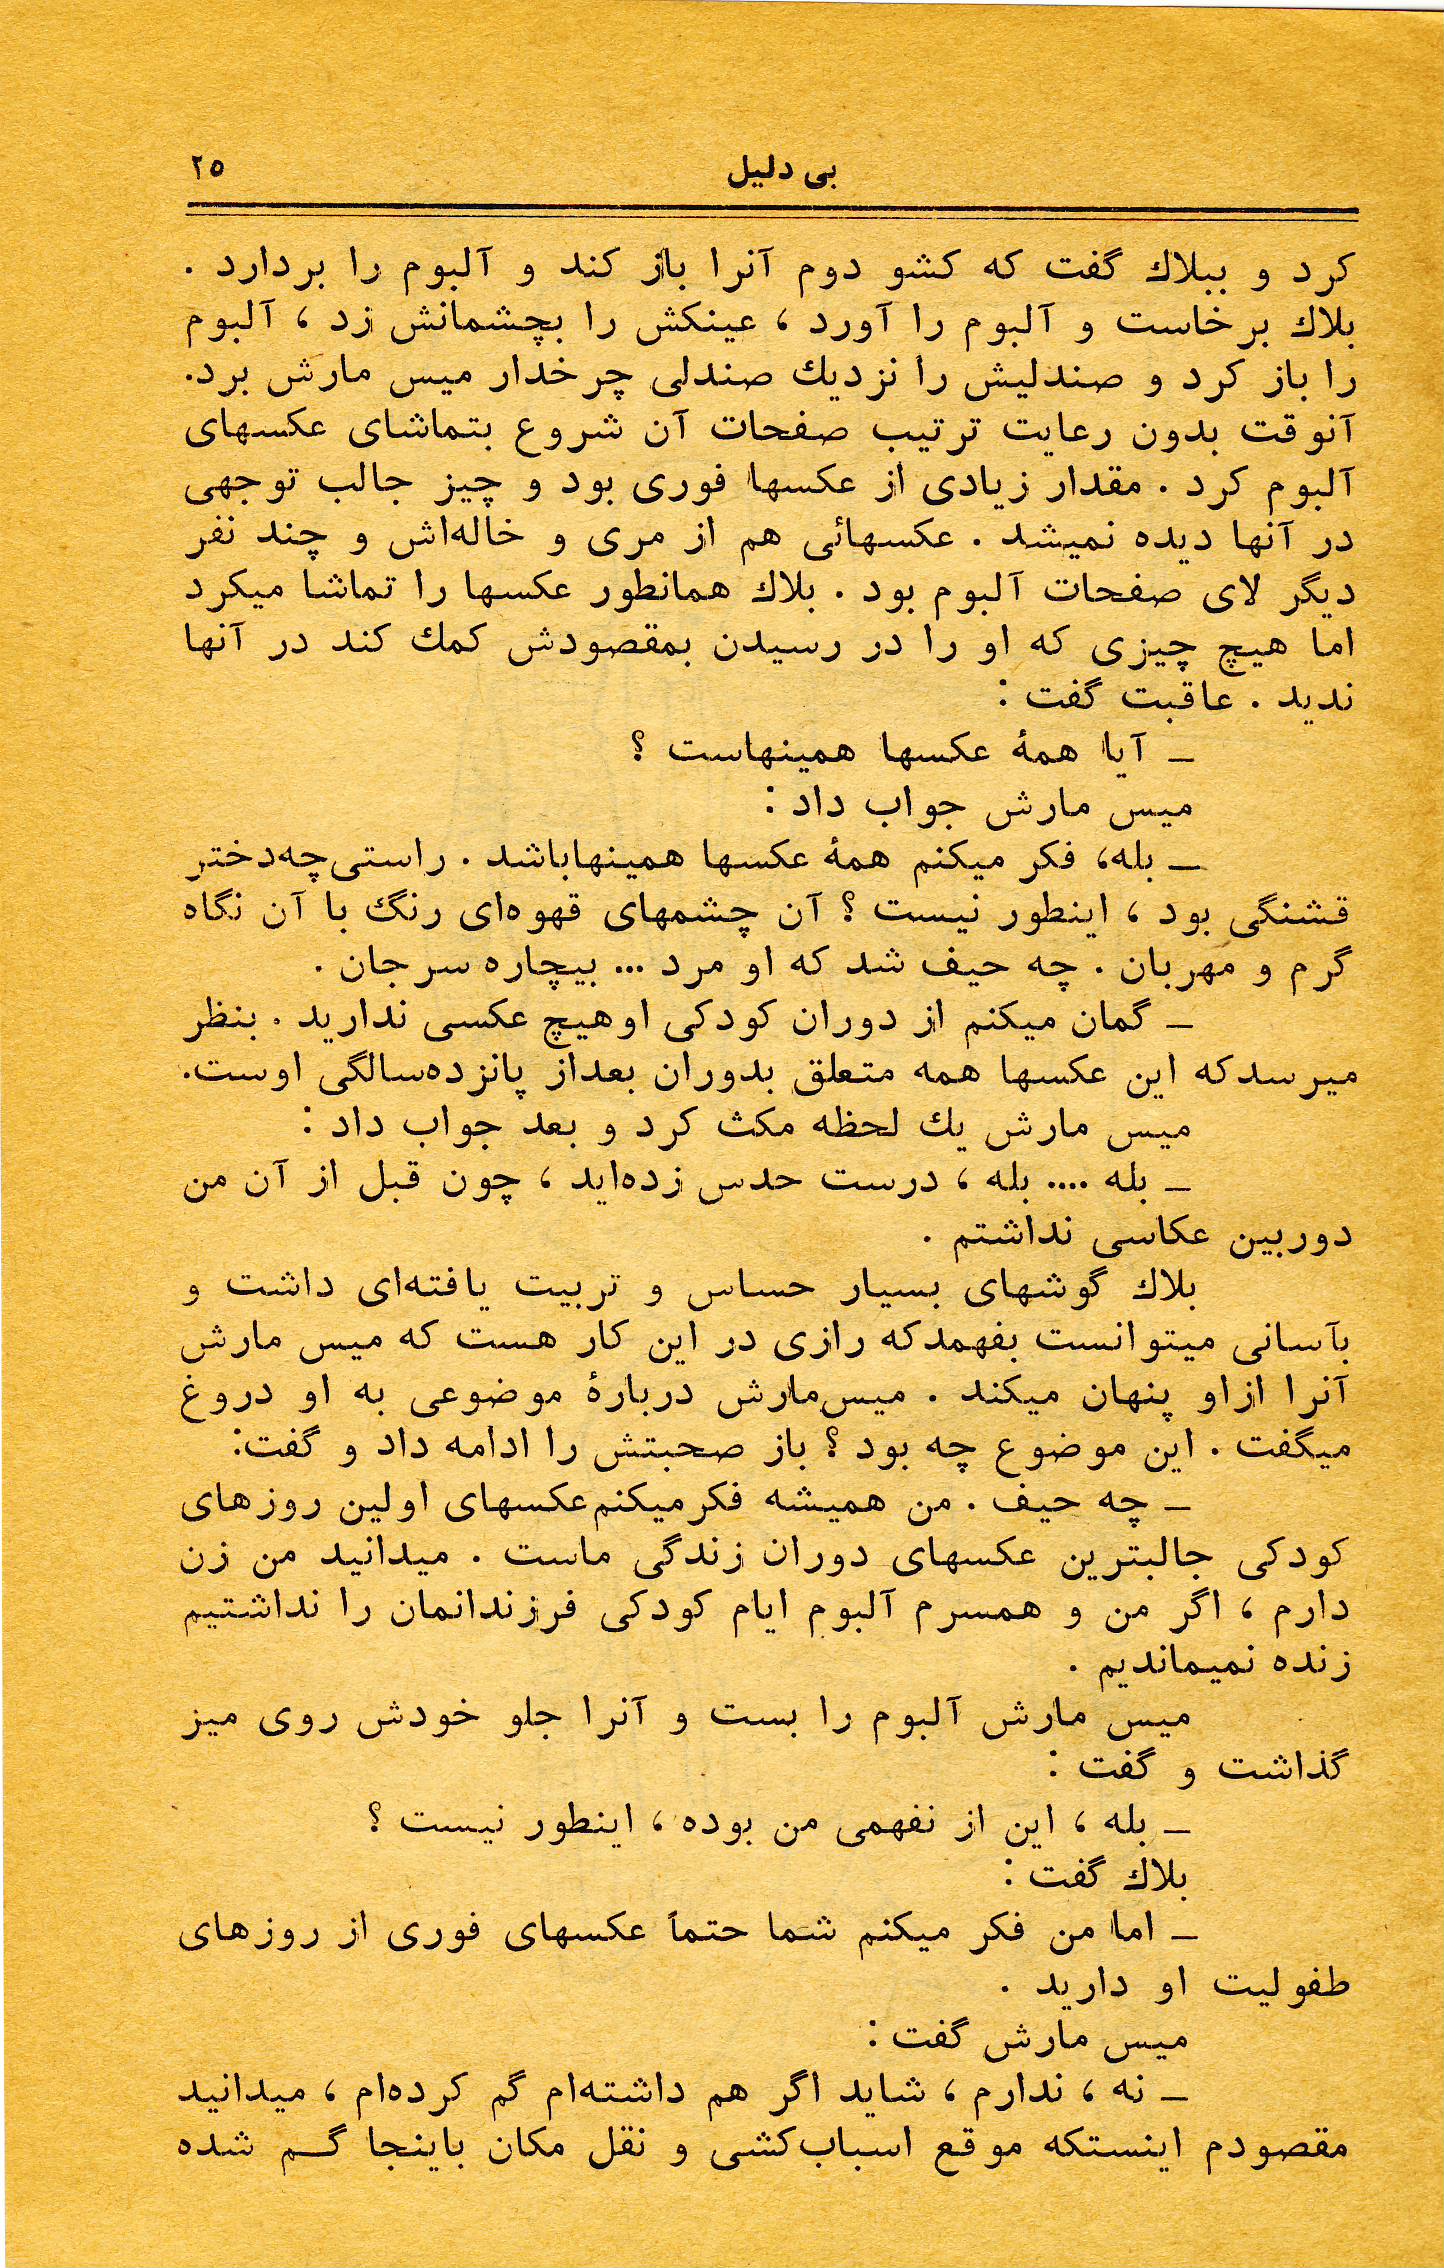 بی دلیل ۲۵
کرد و ببلاك گفت که کشو دوم آنرا باز کند و آلبوم را بردارد .
بلاك برخاست و آلبوم را آورد ، عینکش را بچشمانش زد ، آلبوم
را باز کرد و صندلیش را نزدیك صندلی چرخدار میس مارش برد.
آنوقت بدون رعایت ترتیب صفحات آن شروع بتماشای عکسهای
آلبوم کرد . مقدار زیادی از عکسها فوری بود و چیز جالب توجهی
در آنها دیده نمیشد . عکسهائی هم از مری و خاله‌اش و چند نفر
دیگر لای صفحات آلبوم بود . بلاك همانطور عکسها را تماشا میکرد
اما هیچ چیزی که او را در رسیدن بمقصودش کمك کند در آنها
ندید . عاقبت گفت :
ـ آیا همهٔ عکسها همینهاست ؟
میس مارش جواب داد :
ـ بله، فکر میکنم همهٔ عکسها همینهاباشد . راستی‌چه‌دختر
قشنگی بود ، اینطور نیست ؟ آن چشمهای قهوه‌ای رنگ با آن نگاه
گرم و مهربان . چه حیف شد که او مرد ... بیچاره سرجان .
ـ گمان میکنم از دوران کودکی اوهیچ عکسی ندارید . بنظر
میرسدکه این عکسها همه متعلق بدوران بعداز پانزده‌سالگی اوست.
میس مارش یك لحظه مکث کرد و بعد جواب داد :
ـ بله .... بله ، درست حدس زده‌اید ، چون قبل از آن من
دوربین عکاسی نداشتم .
بلاك گوشهای بسیار حساس و تربیت یافته‌ای داشت و
بآسانی میتوانست بفهمدکه رازی در این کار هست که میس مارش
آنرا ازاو پنهان میکند . میس‌مارش دربارهٔ موضوعی به او دروغ
میگفت . این موضوع چه بود ؟ باز صحبتش را ادامه داد و گفت:
ـ چه حیف . من همیشه فکرمیکنم‌عکسهای اولین روزهای
کودکی جالبترین عکسهای دوران زندگی ماست . میدانید من زن
دارم ، اگر من و همسرم آلبوم ایام کودکی فرزندانمان را نداشتیم
زنده نمیماندیم .
میس مارش آلبوم را بست و آنرا جلو خودش روی میز
گذاشت و گفت :
ـ بله ، این از نفهمی من بوده ، اینطور نیست ؟
بلاك گفت :
ـ اما من فکر میکنم شما حتماً عکسهای فوری از روزهای
طفولیت او دارید .
میس مارش گفت :
ـ نه ، ندارم ، شاید اگر هم داشته‌ام گم کرده‌ام ، میدانید
مقصودم اینستکه موقع اسباب‌کشی و نقل مکان باینجا گـم شده